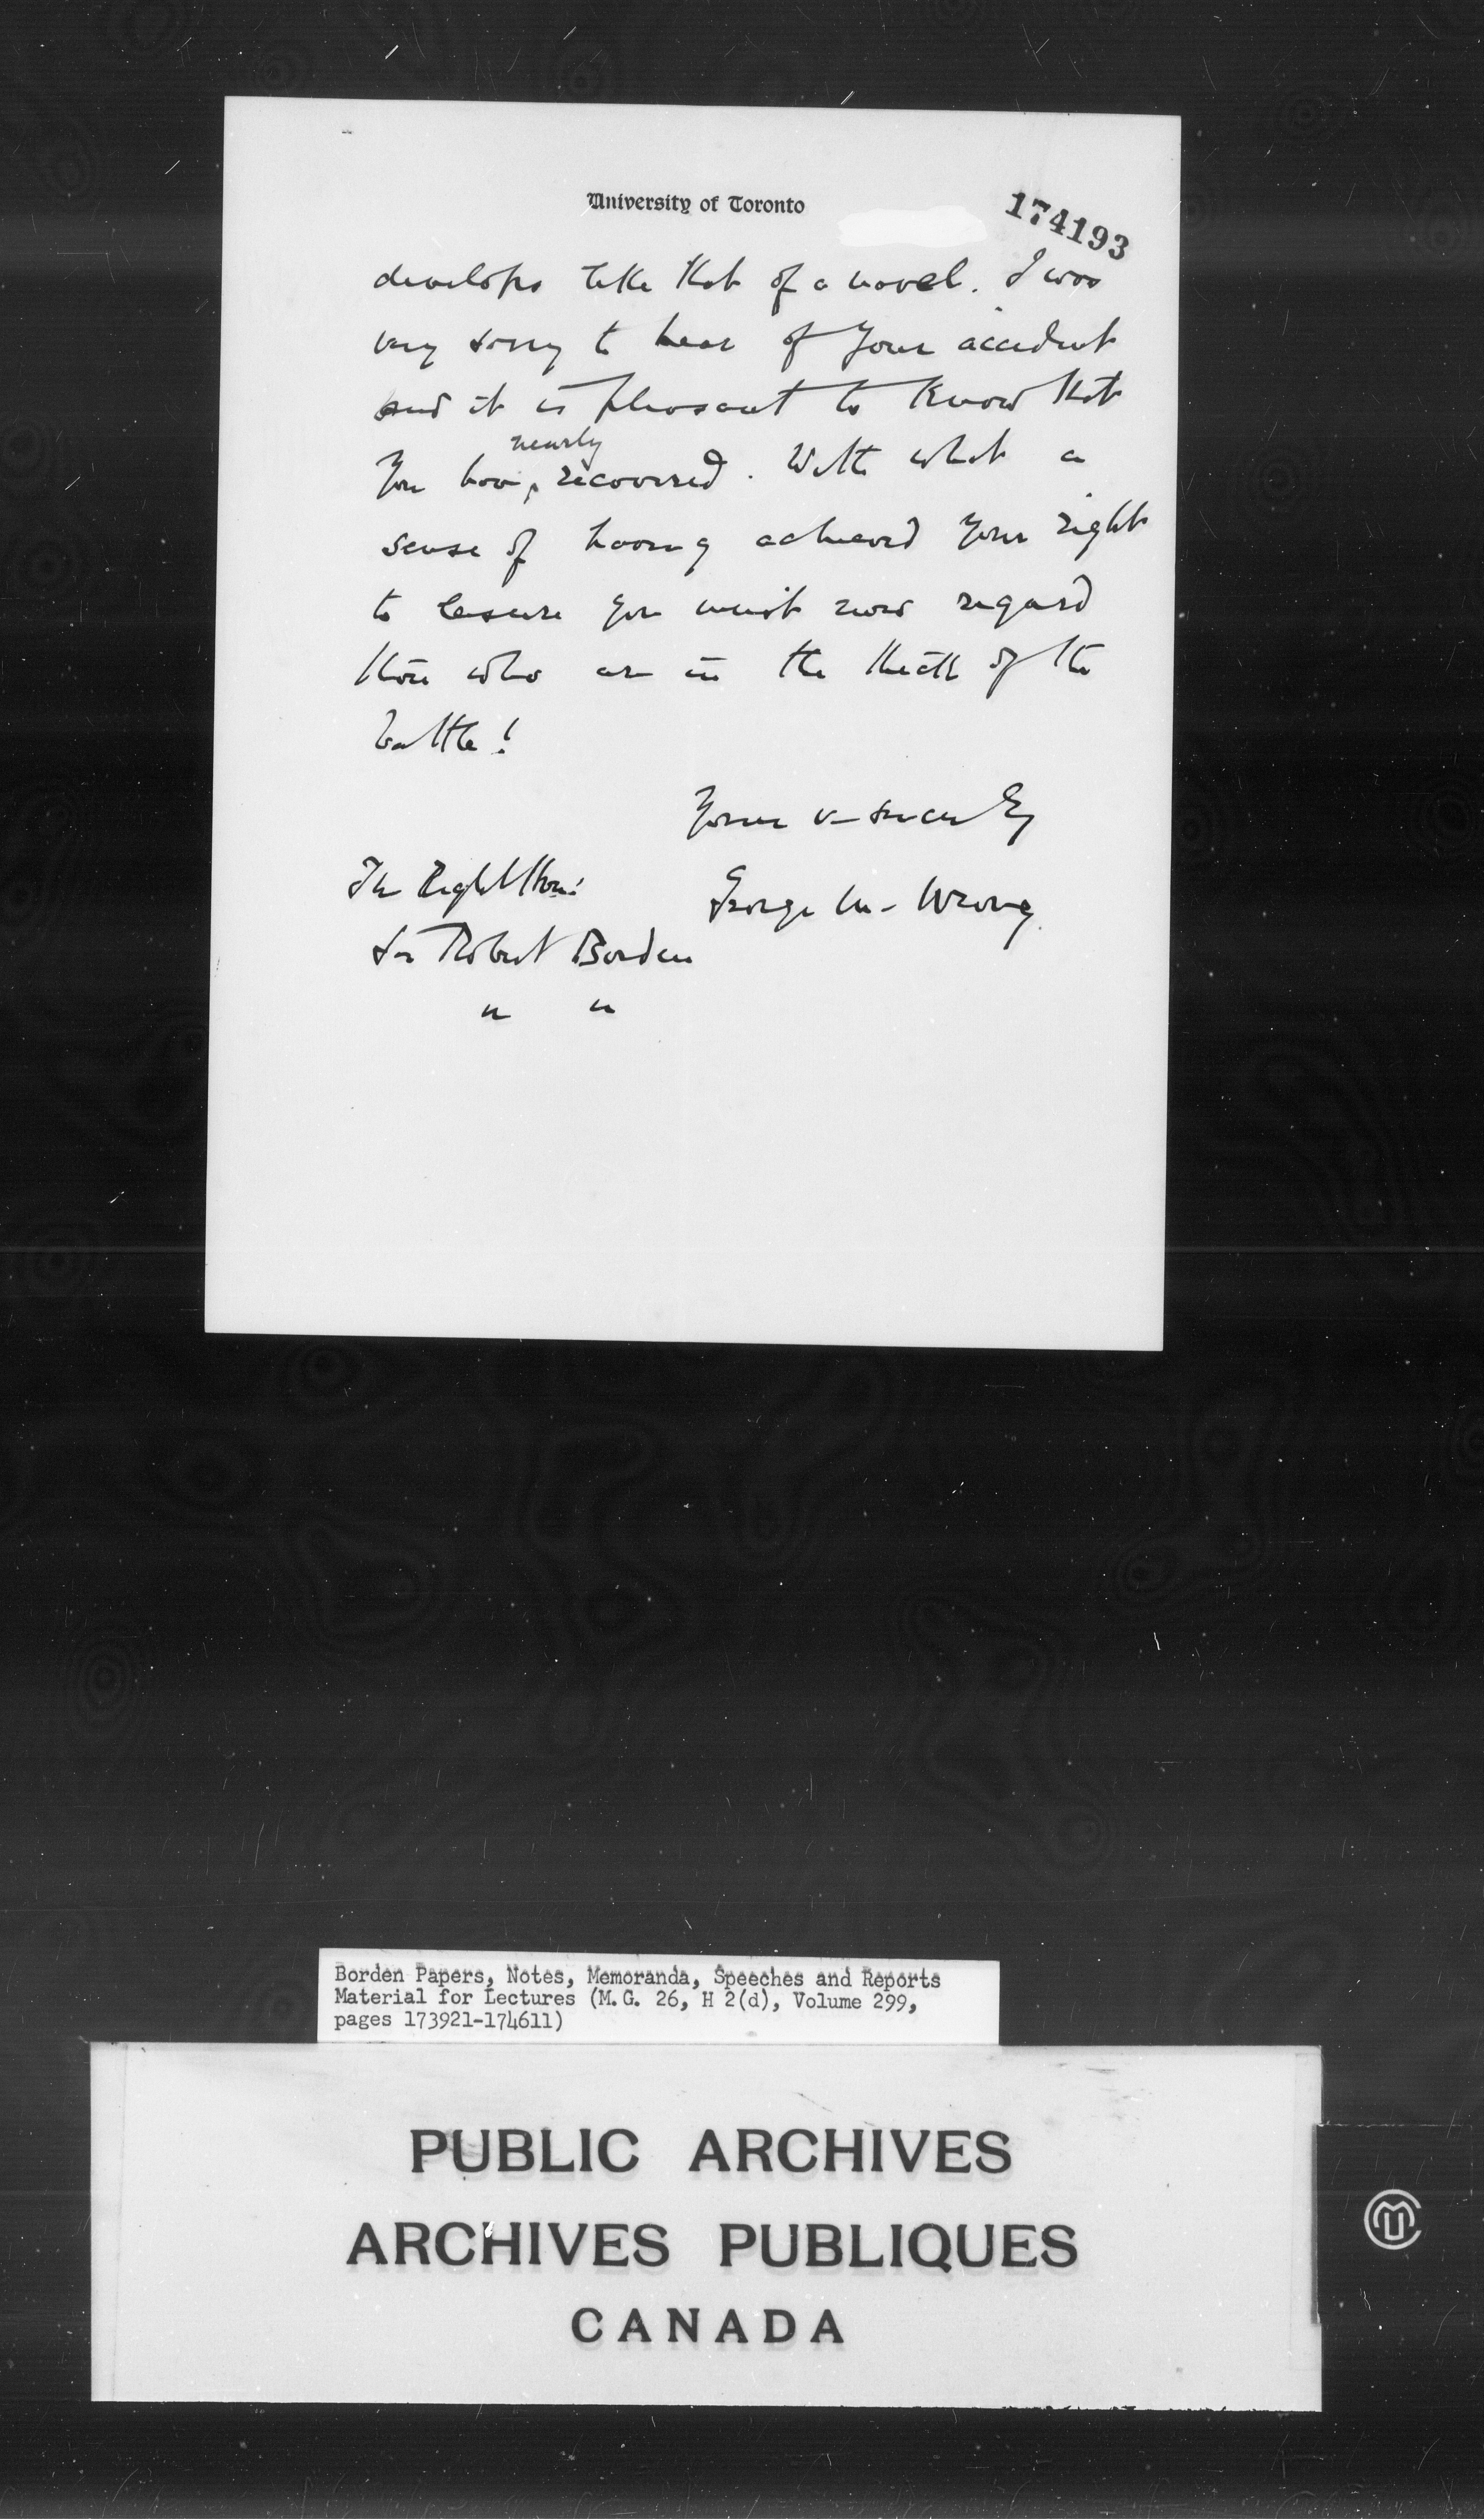 University of Toronto
174193
develops like that of a novel. I was
very sorry to hear of your accident
and it is pleasant to know that
nearly
you have recovered. With what a
sense of having achieved your right
to leisure you must now regard
those who are in the thick of the
battle!
Yours v sincerely
The Right Hon:
George M. Wrong.
Sir Robert Borden
" "
Borden Papers, Notes, Memoranda, Speeches and Reports
Material for Lectures (M.G. 26, H 2(d), Volume 299,
pages 173921-174611)
PUBLIC ARCHIVES
ARCHIVES PUBLIQUES
CANADA